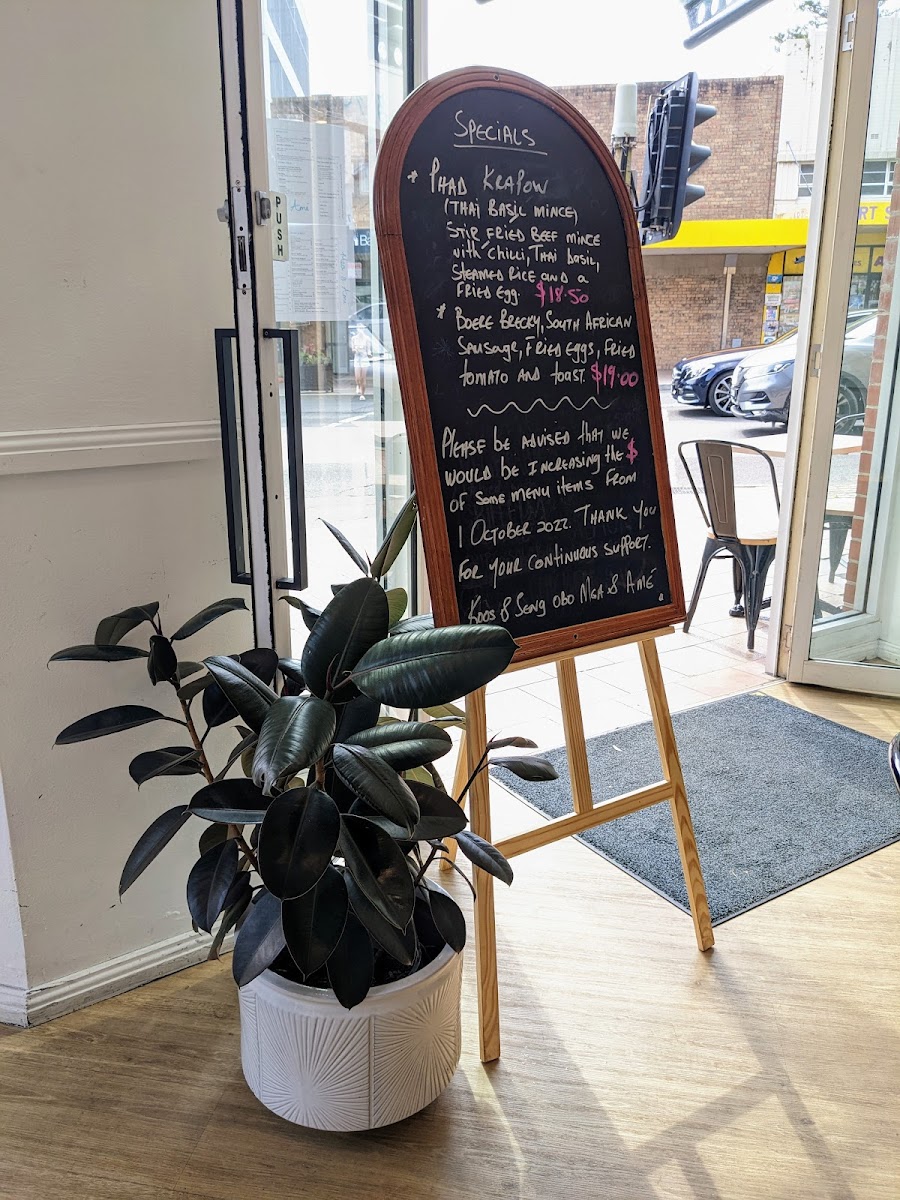 SPECIALS
* PHAD KRAPOW
(THAI BASIL MINCE)
STIR FRIED BEEF MINCE
with CHILLI, THAI BASIL,
STEAMED RICE AND A
FRIED EGG. $18.50
* BOERE BRECKY, SOUTH AFRICAN
SAUSAGE, FRIED EGGS, FRIED
TOMATO AND TOAST. $19.00
PLEASE BE ADVISED THAT WE
WOULD BE INCREASING THE $
OF SOME MENU ITEMS FROM
1 OCTOBER 2022. THANK YOU
FOR YOUR CONTINUOUS SUPPORT.
KOOS & SENG OBO MGA & AMÉ
PUSH